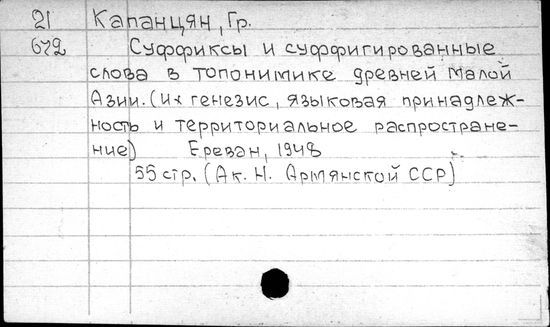 21 Капанцян, Гр.
672 Суффиксы и суффигированные
слова в топонимике древней Малой
Азии. (Их генезис, языковая принадлеж-
ность и территориальное распростране-
ние) Ереван, 1948
55 стр. (Ак. Н. Армянской ССР)